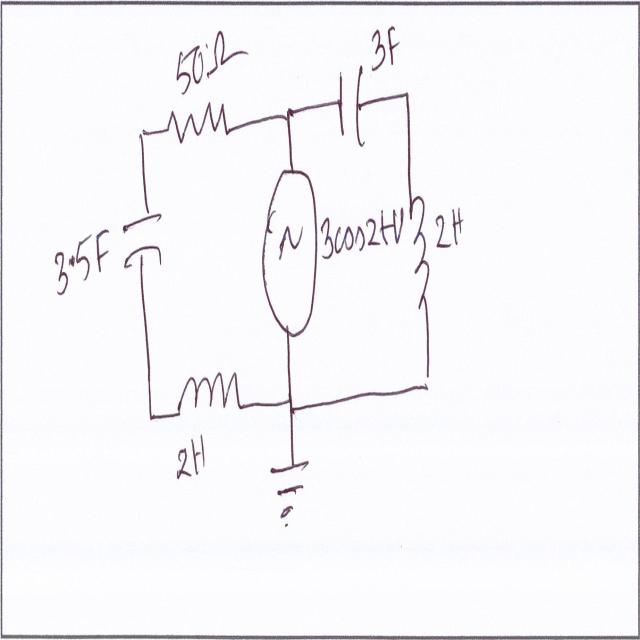 50Ω
3F
3.5F
N
3cos2tV
2H
2H